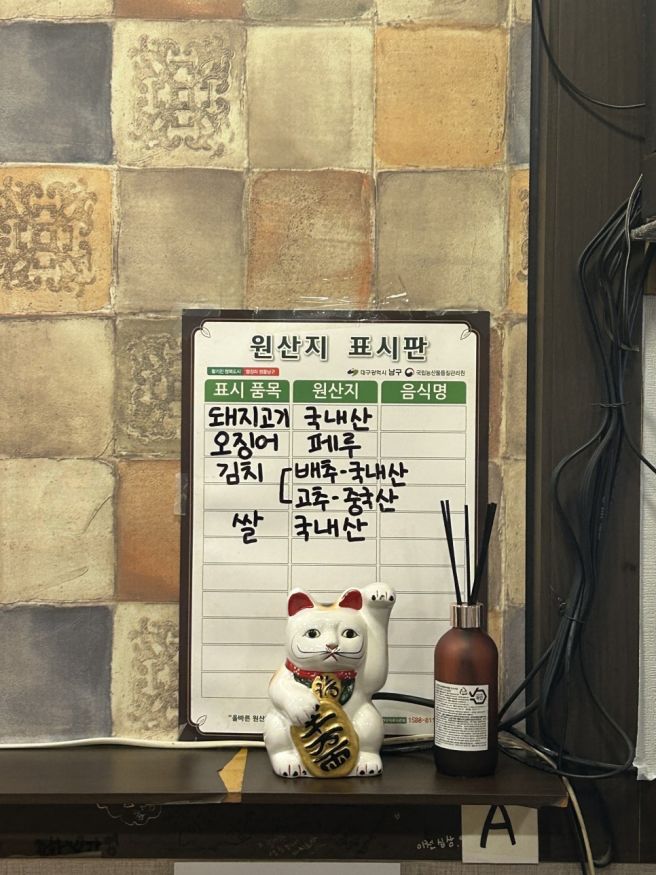 원산지 표시판
대구광역시 남구 국립농산물품질관리원
표시 품목 원산지 음식명
돼지고기 국내산
오징어 페루
김치 배추-국내산
고추-중국산
쌀 국내산
"올바른 원산
1588-811
A
이런 십상